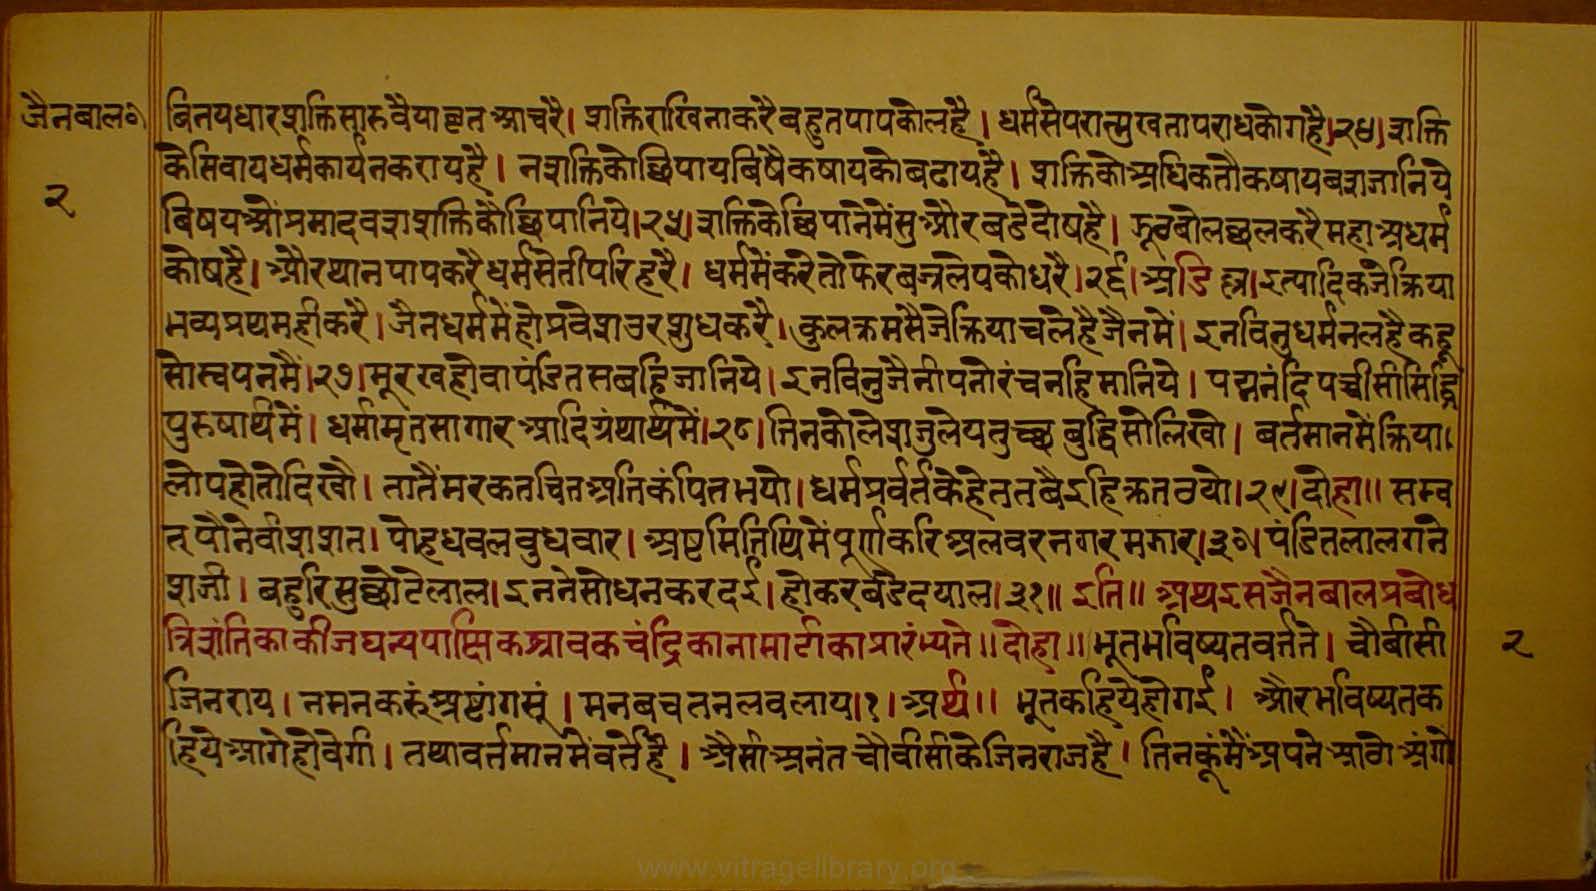 जैनबाल॰
२
बिनयधारशक्तिसारुवैयावृतआचरै। शक्तिराखिनाकरैबहुतपापकोलहै। धर्मसेपरान्मुखतापराधकोगहै।२४। शक्ति
केसिवायधर्मकार्यतकरायहै। नशक्तिकोछिपायबिषैकषायकोबढायहै। शक्तिकोअधिकतौकषायबशजानिये
बिषयओंप्रमादवशशक्तिकौछिपानिये।२५। शक्तिकेछिपानेमेंसुऔरबडेदोषहै। झूठबोलछलकरैमहाअधर्म
कोषहै। औरथानपापकरैधर्मसेतीपरिहरै। धर्ममेंकरेतोफेरबज्रलेपकोधरै।२६। अडिल्ल। इत्यादिकजेक्रिया
भव्यप्रथमहीकरै। जैनधर्ममेंहोप्रवेशउरशुधकरै। कुलक्रमसैजेक्रियाचलेहैजैनमें। इनविनुधर्मनलहैकहू
सोस्वपनमैं।२७। मूरखहोवापंडितसबहिजानिये। इनविनुजैनीपनोरंचनहिमानिये। पद्मनंदिपच्चीसीसिद्धि
पुरुषार्थमें। धर्मामृतसागारआदिग्रंथार्थमें।२८। तिनकोलेशजुलेयतुच्छबुद्धिसोलिखो। बर्तमानमेंक्रिया।
लोपहोतोदिखौ। तातैंमरकतचितअतिकंपितभयो। धर्मप्रर्वर्तकेहेततबैइहिक्रतठयो।२९। दोहा॥ सम्व
तपौनेवीशशत। पोहधवलबुधवार। अष्टमितिथिमेंपूर्णकरिअलवरनगरमझार।३०। पंडितलालगने
शजी। बहुरिसुछोटेलाल। इननेसोधनकरदई। होकरबडेदयाल।३१॥ इति॥ अथइसजैनबालप्रबोध
त्रिशंतिकाकीजघन्यपाक्षिकश्रावकचंद्रिकानामाटीकाप्रारंभ्यते॥ दोहा॥ भूतभविष्यतवर्त्तते। चौबीसी
जिनराय। नमनकरुंअष्टांगसूं। मनबचतनलवलाय।१। अर्थ॥ भूतकहियेहोगई। औरभविष्यतक
हियेआगेहोवेगी। तथावर्तमानमेंवर्तेहै। अैसीअनंतचौवीसीकेजिनराजहै। तिनकूंमैंअपनेआठोअंगो
२
www.vitragelibrary.org